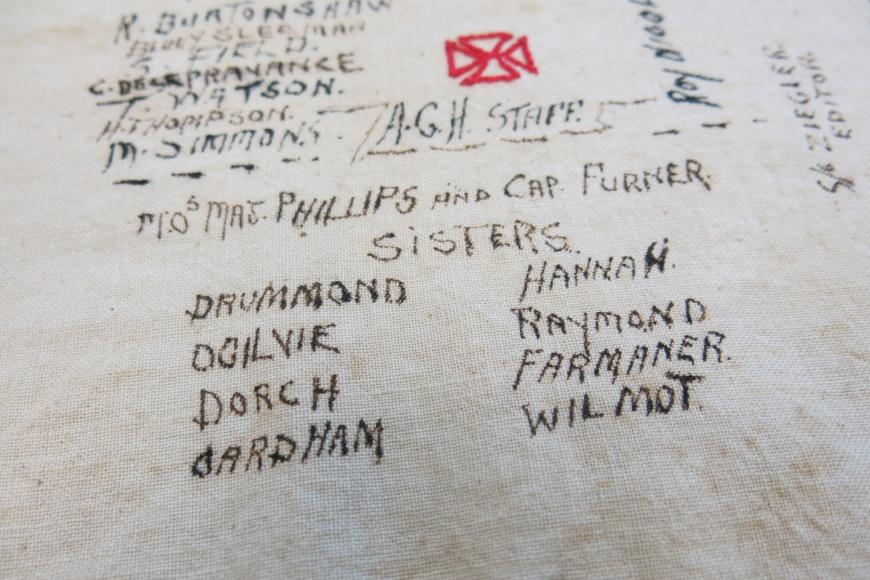 R. BURTONSHAW
BLUEY SLEEMAN
FIELD.
PRAVANCE
T. WATSON.
H. THOMPSON.
M. SIMMONS.
A.G.H. STAFF.
ROY
S/S ZIEGLER
EDITOR
M.Os MAJ. PHILLIPS AND CAP. FURNER.
SISTERS.
DRUMMOND
OGILVIE
DORCH
CARDHAM
HANNAH.
RAYMOND
FARMANER.
WILMOT.